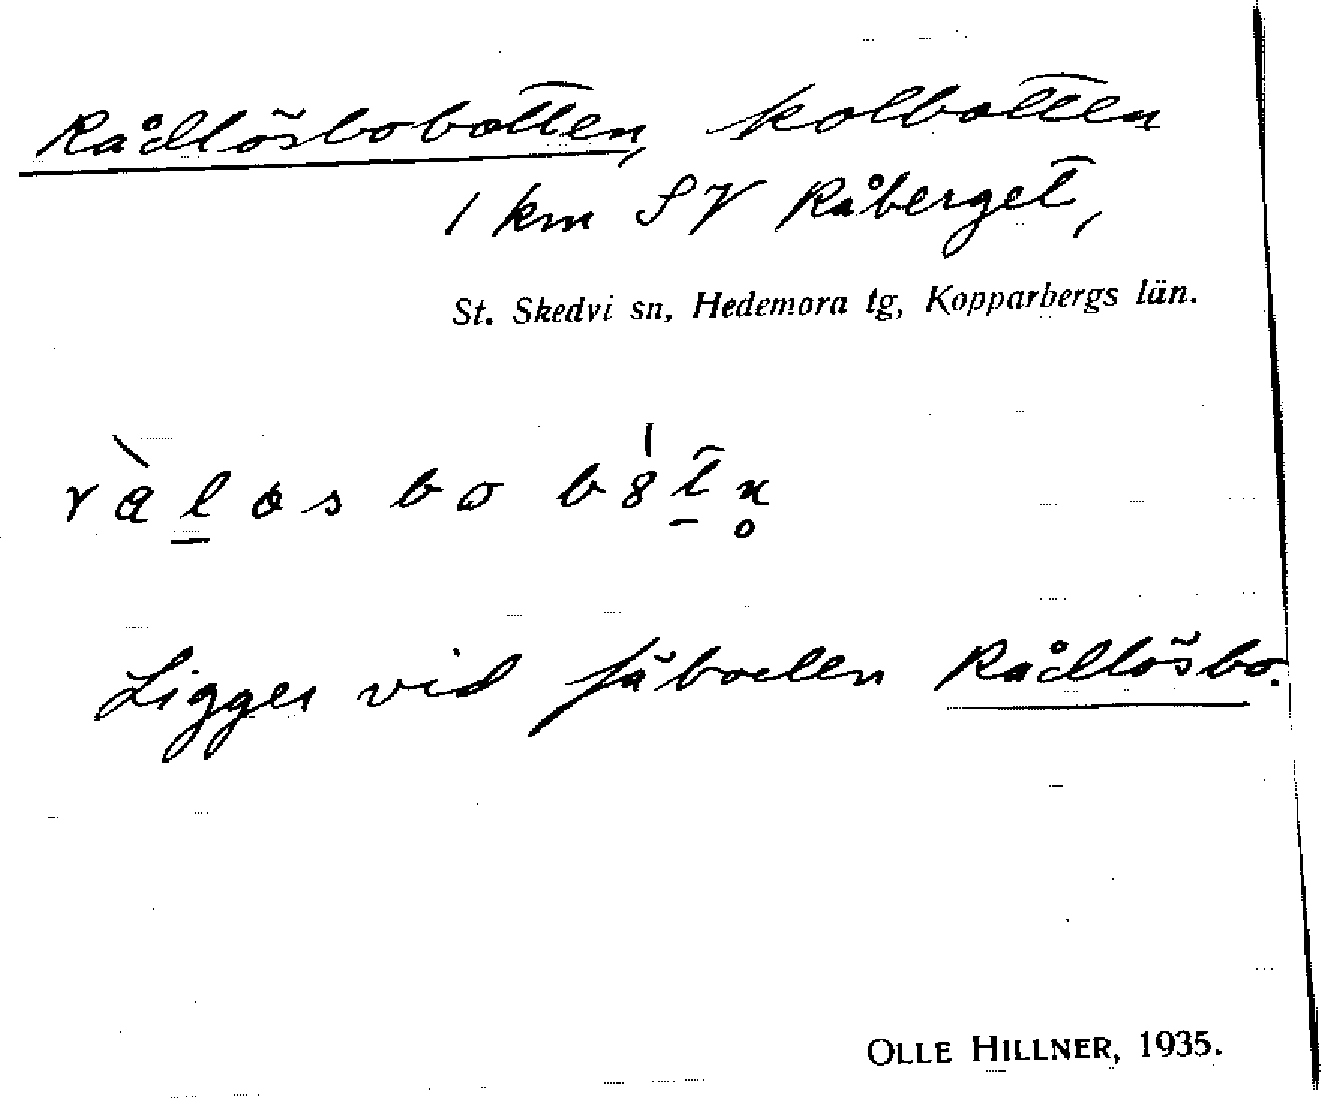 Rådlösbobotten, kolbotten
1 km SV Råberget,
St. Skedvi sn, Hedemora tg, Kopparbergs län.
Ligger vid fäboden Rådlösbo.
OLLE HILLNER, 1935.